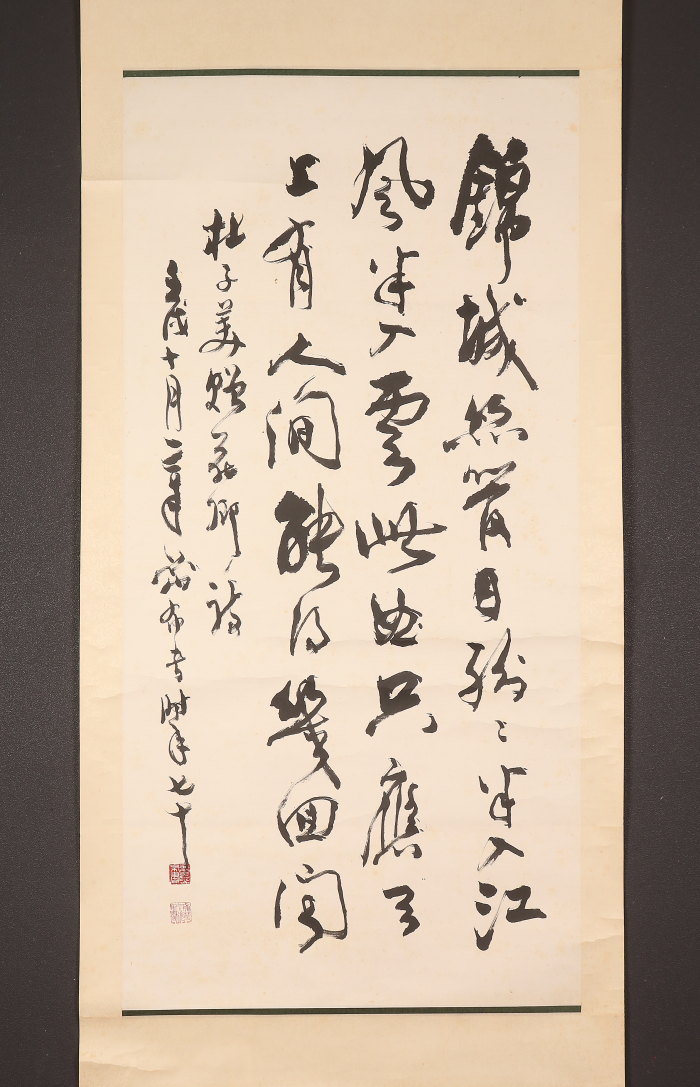 錦城絲管日紛〻半入江
風半入雲此曲只應天
上有人間能得幾回聞
杜子美贈花卿詩
壬戌十月 布書時年七十